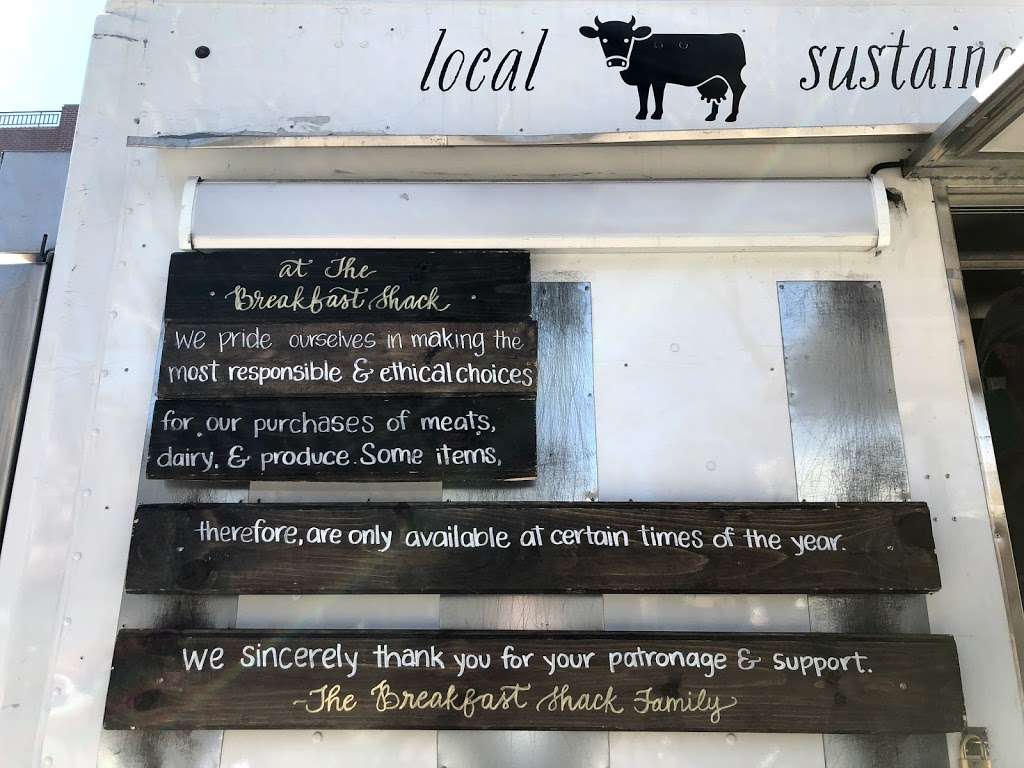 local
at The
Breakfast Shack
we pride ourselves in making the
most responsible & ethical choices
for our purchases of meats,
dairy, & produce. Some items,
therefore, are only available at certain times of the year.
we sincerely thank you for your patronage & support.
-The Breakfast Shack Family